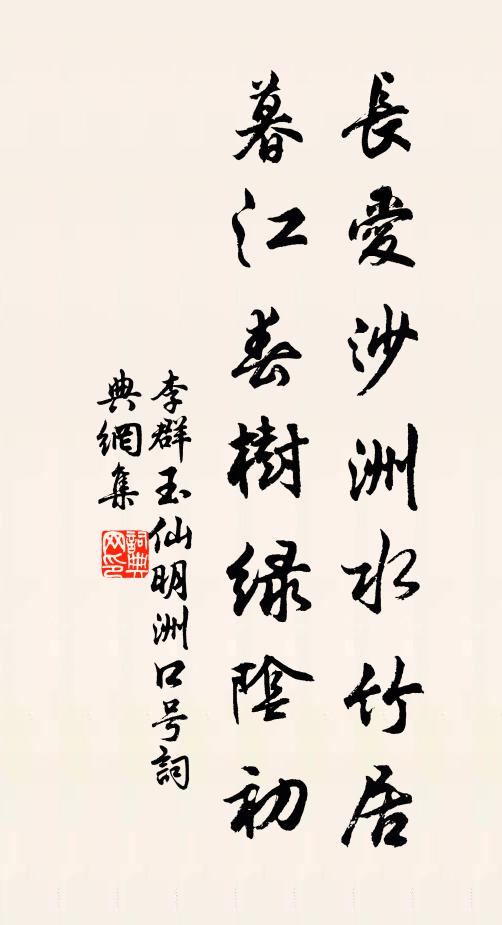 長愛沙洲水竹居
暮江春樹绿陰初
李群玉仙明洲口号詞
典網集
詞典
网印